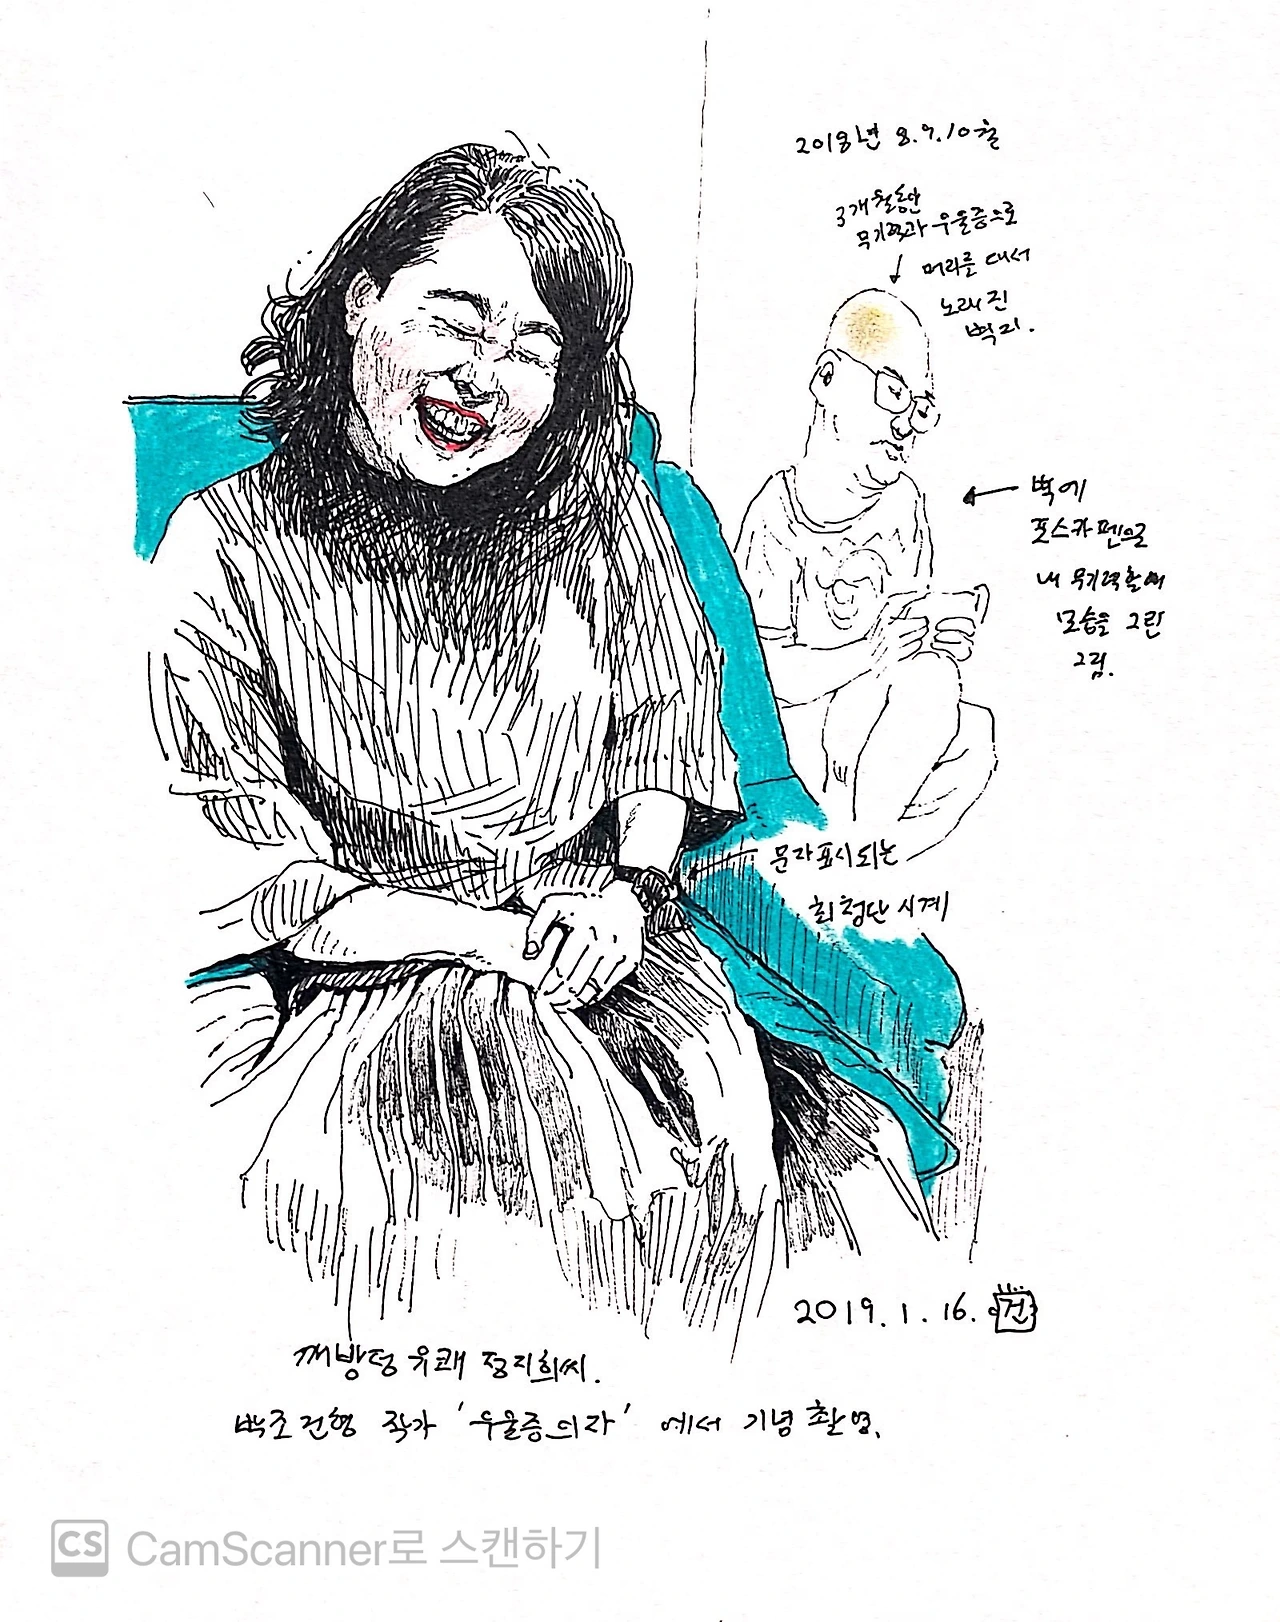 2018년 8.9.10월
3개월동안
무기력과 우울증으로
머리를 대서
노래진
벽지.
벽에
포스카펜으로
내 무기력할때
모습을 그린
그림.
문자표시되는
최첨단 시계
2019.1.16. 건
깨방정 유쾌 정지희씨.
박조건형 작가 '우울증의자' 에서 기념 촬영.
CS CamScanner로 스캔하기